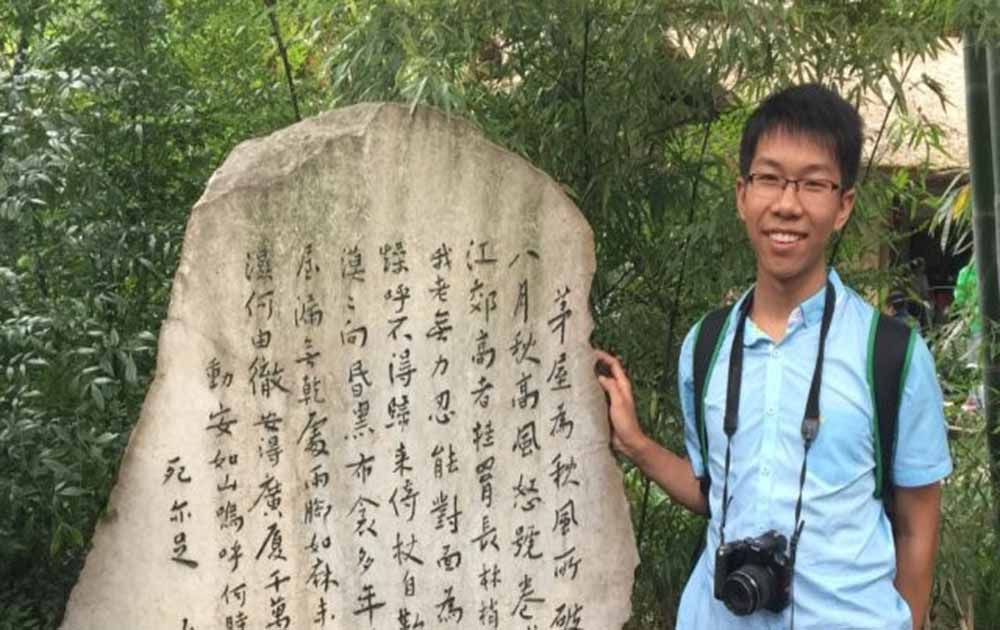 茅屋為秋風所破
八月秋高風怒號卷
江郊高者挂罥長林梢
我老無力忍能對面為
燥呼不得歸来倚杖自歎
漠〻向昏黑布衾多年
屋漏无乾處雨脚如麻未
濕何由徹安得廣厦千萬
動安如山嗚呼何時
死亦足